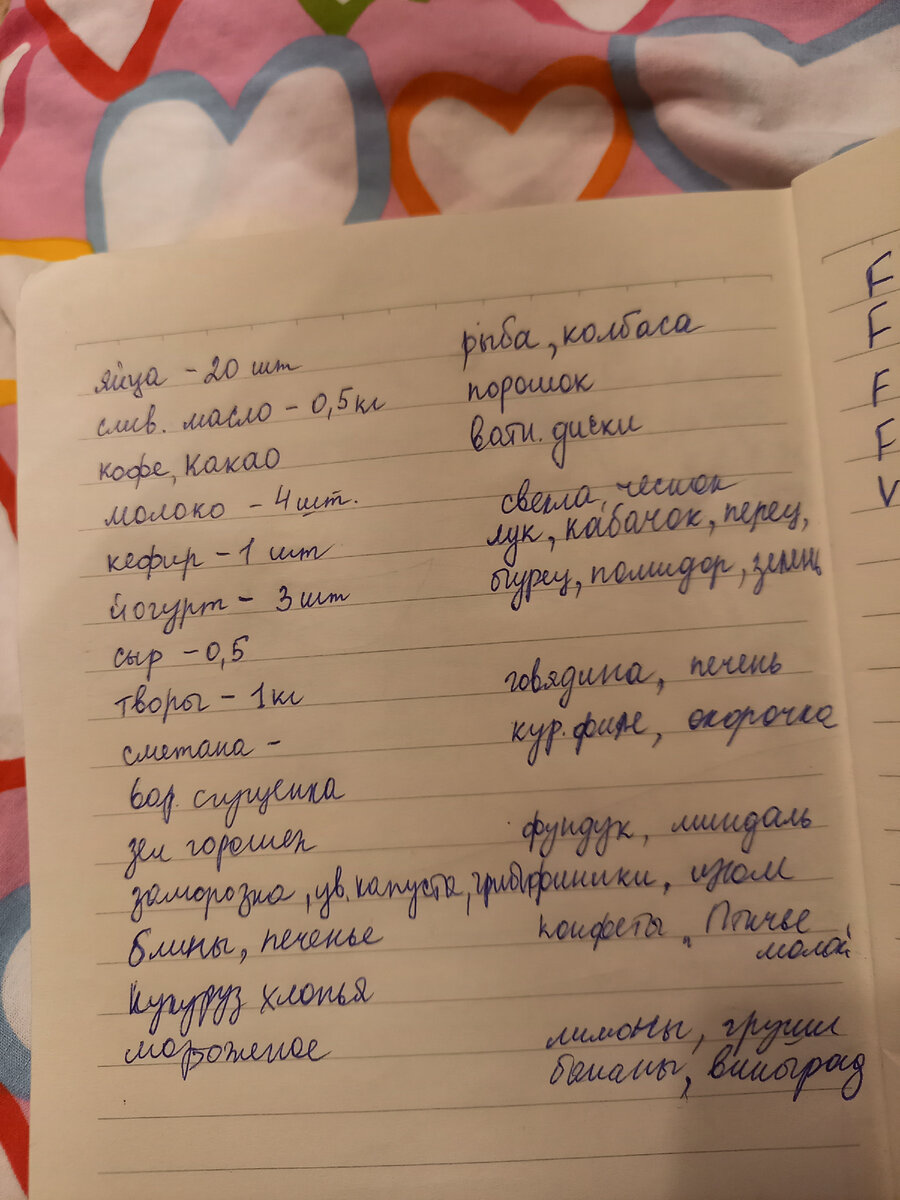 яйца - 20 шт
слив. масло - 0,5 кг
кофе, какао
молоко - 4 шт.
кефир - 1 шт
йогурт - 3 шт
сыр - 0,5
творог - 1 кг
сметана -
вар. сгущенка
зел горошек
заморозка, цв. капуста, грибы
блины, печенье
кукуруз хлопья
мороженое
рыба, колбаса
порошок
ватн. диски
свекла, чеснок
лук, кабачок, перец,
огурец, помидор, зелень
говядина, печень
кур. филе, окорочка
фундук, миндаль
финики, изюм
конфеты "Птичье
молок
лимоны, груши
бананы, виноград
F
F
F
F
V